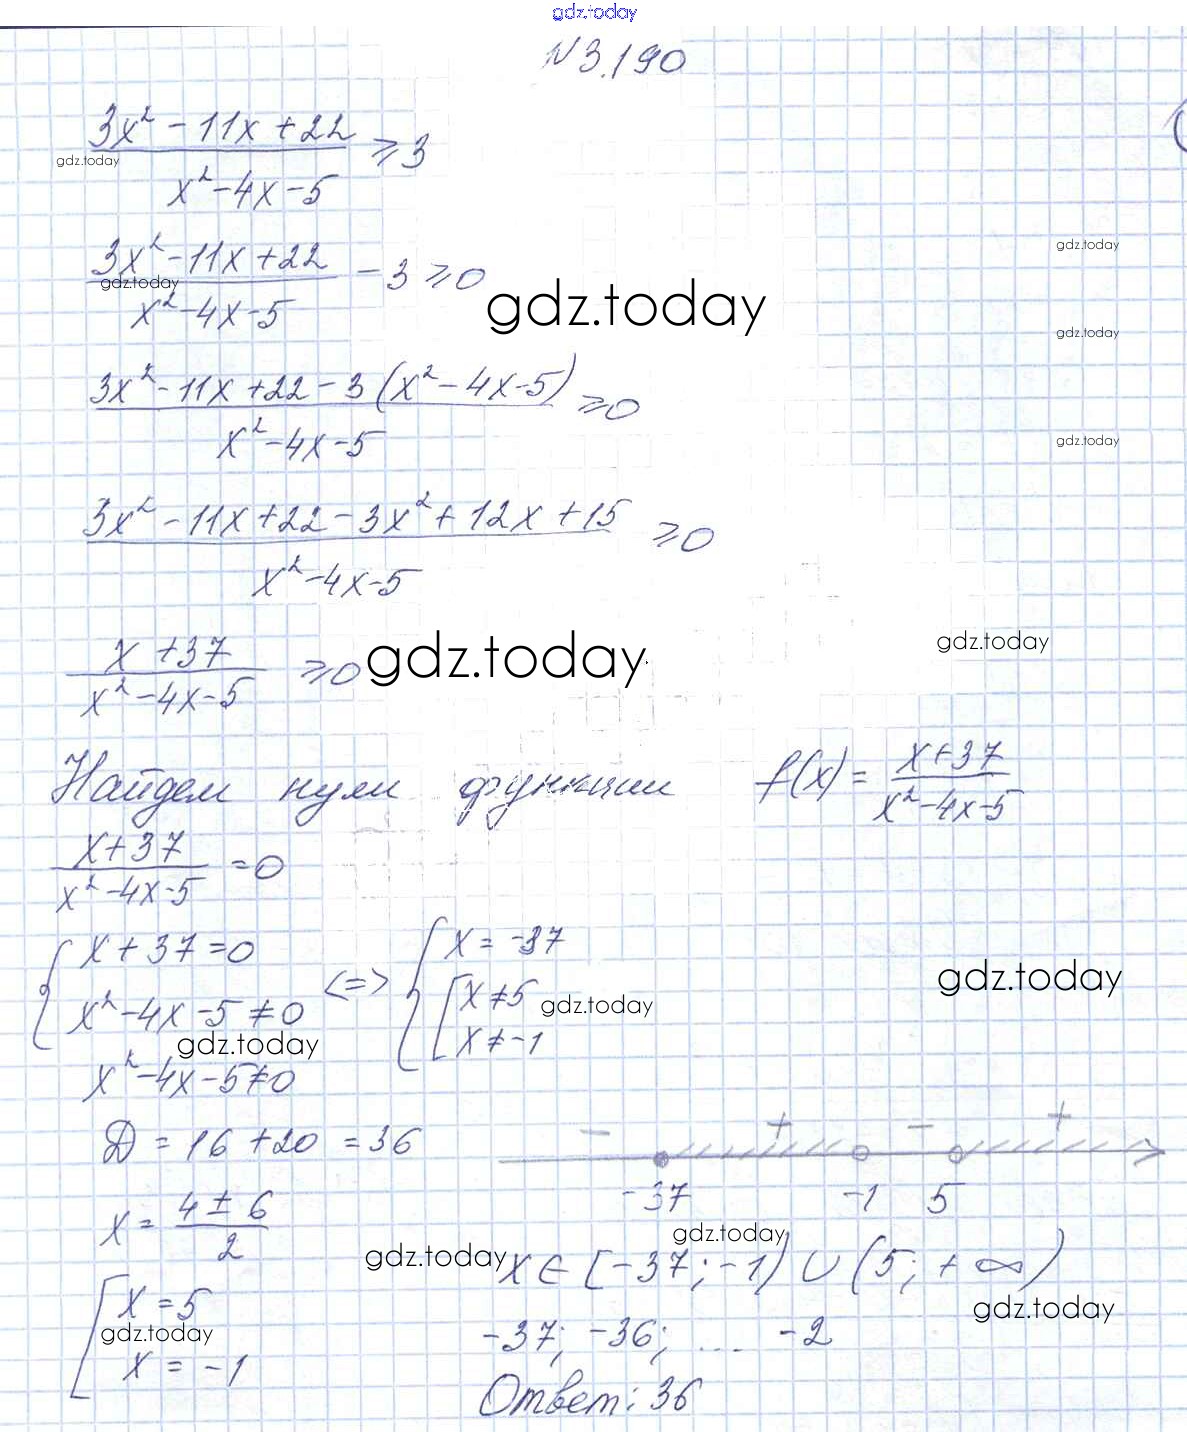 gdz.today
N3.190
3x² - 11x + 22
gdz.today
≥ 3
x² - 4x - 5
gdz.today
3x² - 11x + 22
gdz.today
- 3 ≥ 0
x² - 4x - 5
gdz.today
gdz.today
3x² - 11x + 22 - 3(x² - 4x - 5)
≥ 0
x² - 4x - 5
gdz.today
3x² - 11x + 22 - 3x² + 12x + 15
≥ 0
x² - 4x - 5
x + 37
≥ 0
x² - 4x - 5
gdz.today
gdz.today
Найдем нули функции f(x) = x + 37
x² - 4x - 5
x + 37
= 0
x² - 4x - 5
{ x + 37 = 0
x² - 4x - 5 ≠ 0
<=> { x = -37
[ x ≠ 5
x ≠ -1
gdz.today
gdz.today
gdz.today
x² - 4x - 5 ≠ 0
Д = 16 + 20 = 36
- + - +
-37 -1 5
x = 4 ± 6
2
gdz.today
gdz.today
x ∈ [-37; -1) ∪ (5; +∞)
gdz.today
[ x = 5
gdz.today
x = -1
-37; -36; ... -2
Ответ: 36